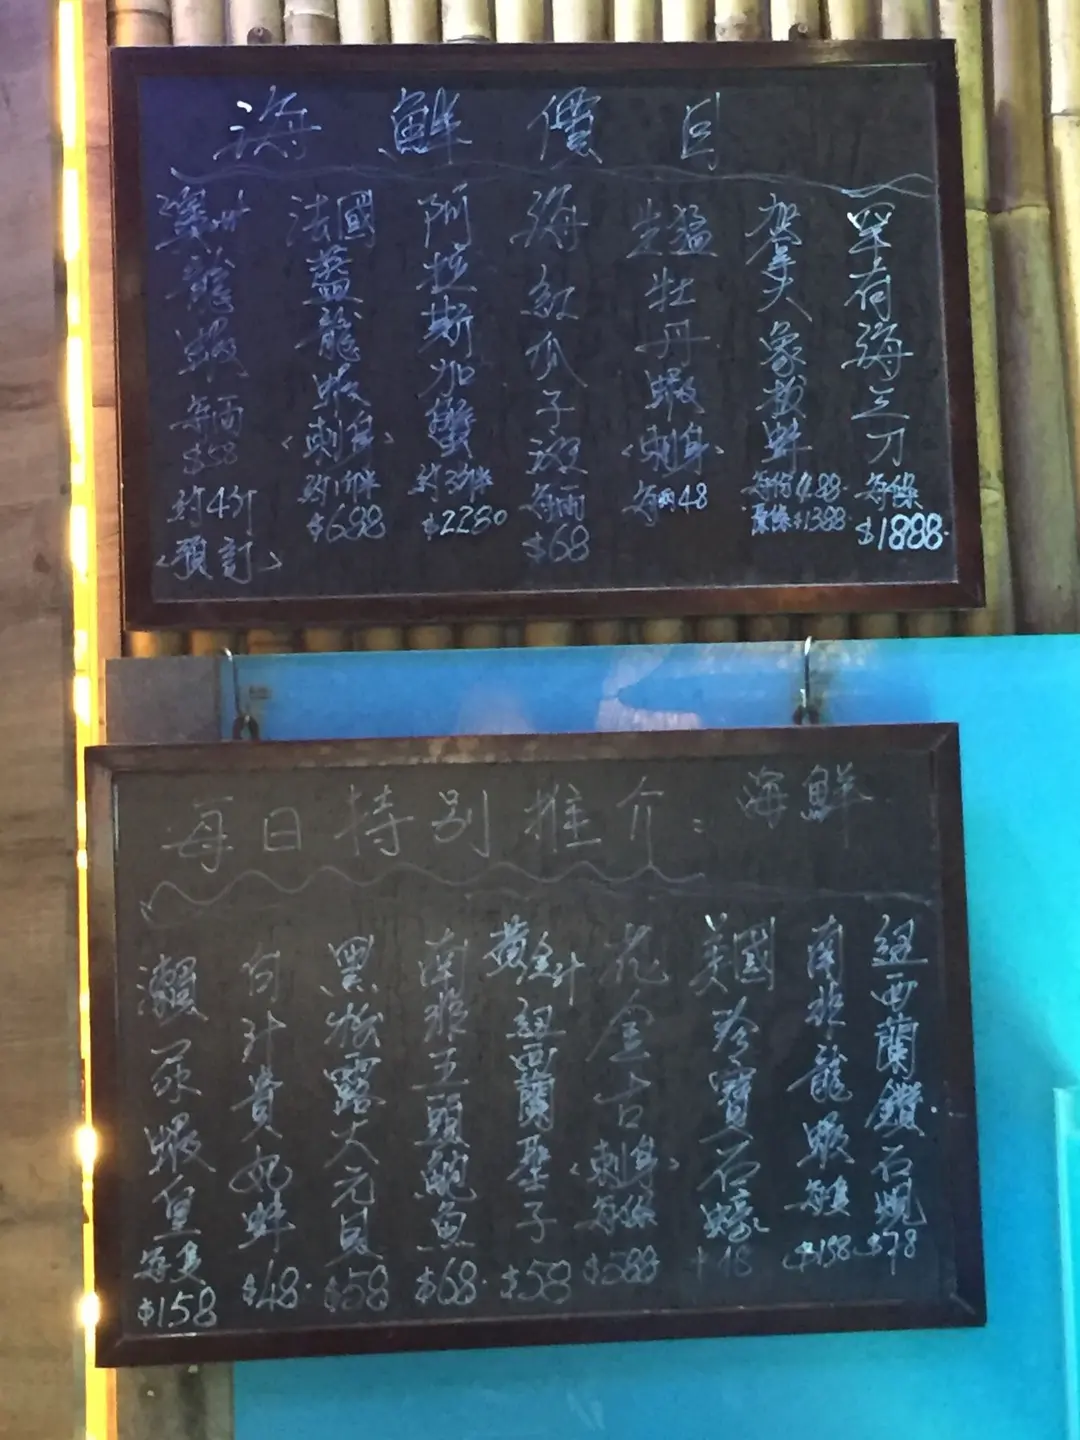 海鮮價目
罕有海三刀 每條 $1888
加拿大象拔蚌 每位 488 原條 $1388
生猛牡丹蝦 <刺身> 每両 48
海紅瓜子斑 每両 $68
阿拉斯加蟹 約3斤半 $2280
法國藍龍蝦 <刺身> 約1斤半 $688
澳州龍蝦 每両 $58 約4斤 <預訂>
每日特別推介：海鮮
紐西蘭鑽石蜆 $78
南非龍蝦 每隻 $158
美國珍寶石蠔
花金古 <刺身> 每條 $388
黃金汁紐西蘭聖子 $58
南非王頭鮑魚 $68
黑松露大元貝 $58
豉汁貴妃蚌 $48
瀨尿蝦皇 每隻 $158